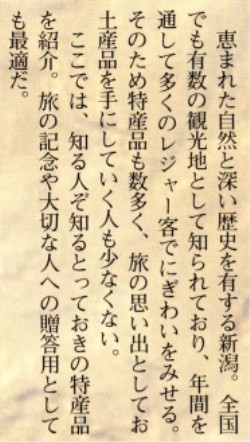 恵まれた自然と深い歴史を有する新潟。全国
でも有数の観光地として知られており、年間を
通して多くのレジャー客でにぎわいをみせる。
そのため特産品も数多く、旅の思い出としてお
土産品を手にしていく人も少なくない。
ここでは、知る人ぞ知るとっておきの特産品
を紹介。旅の記念や大切な人への贈答用として
も最適だ。